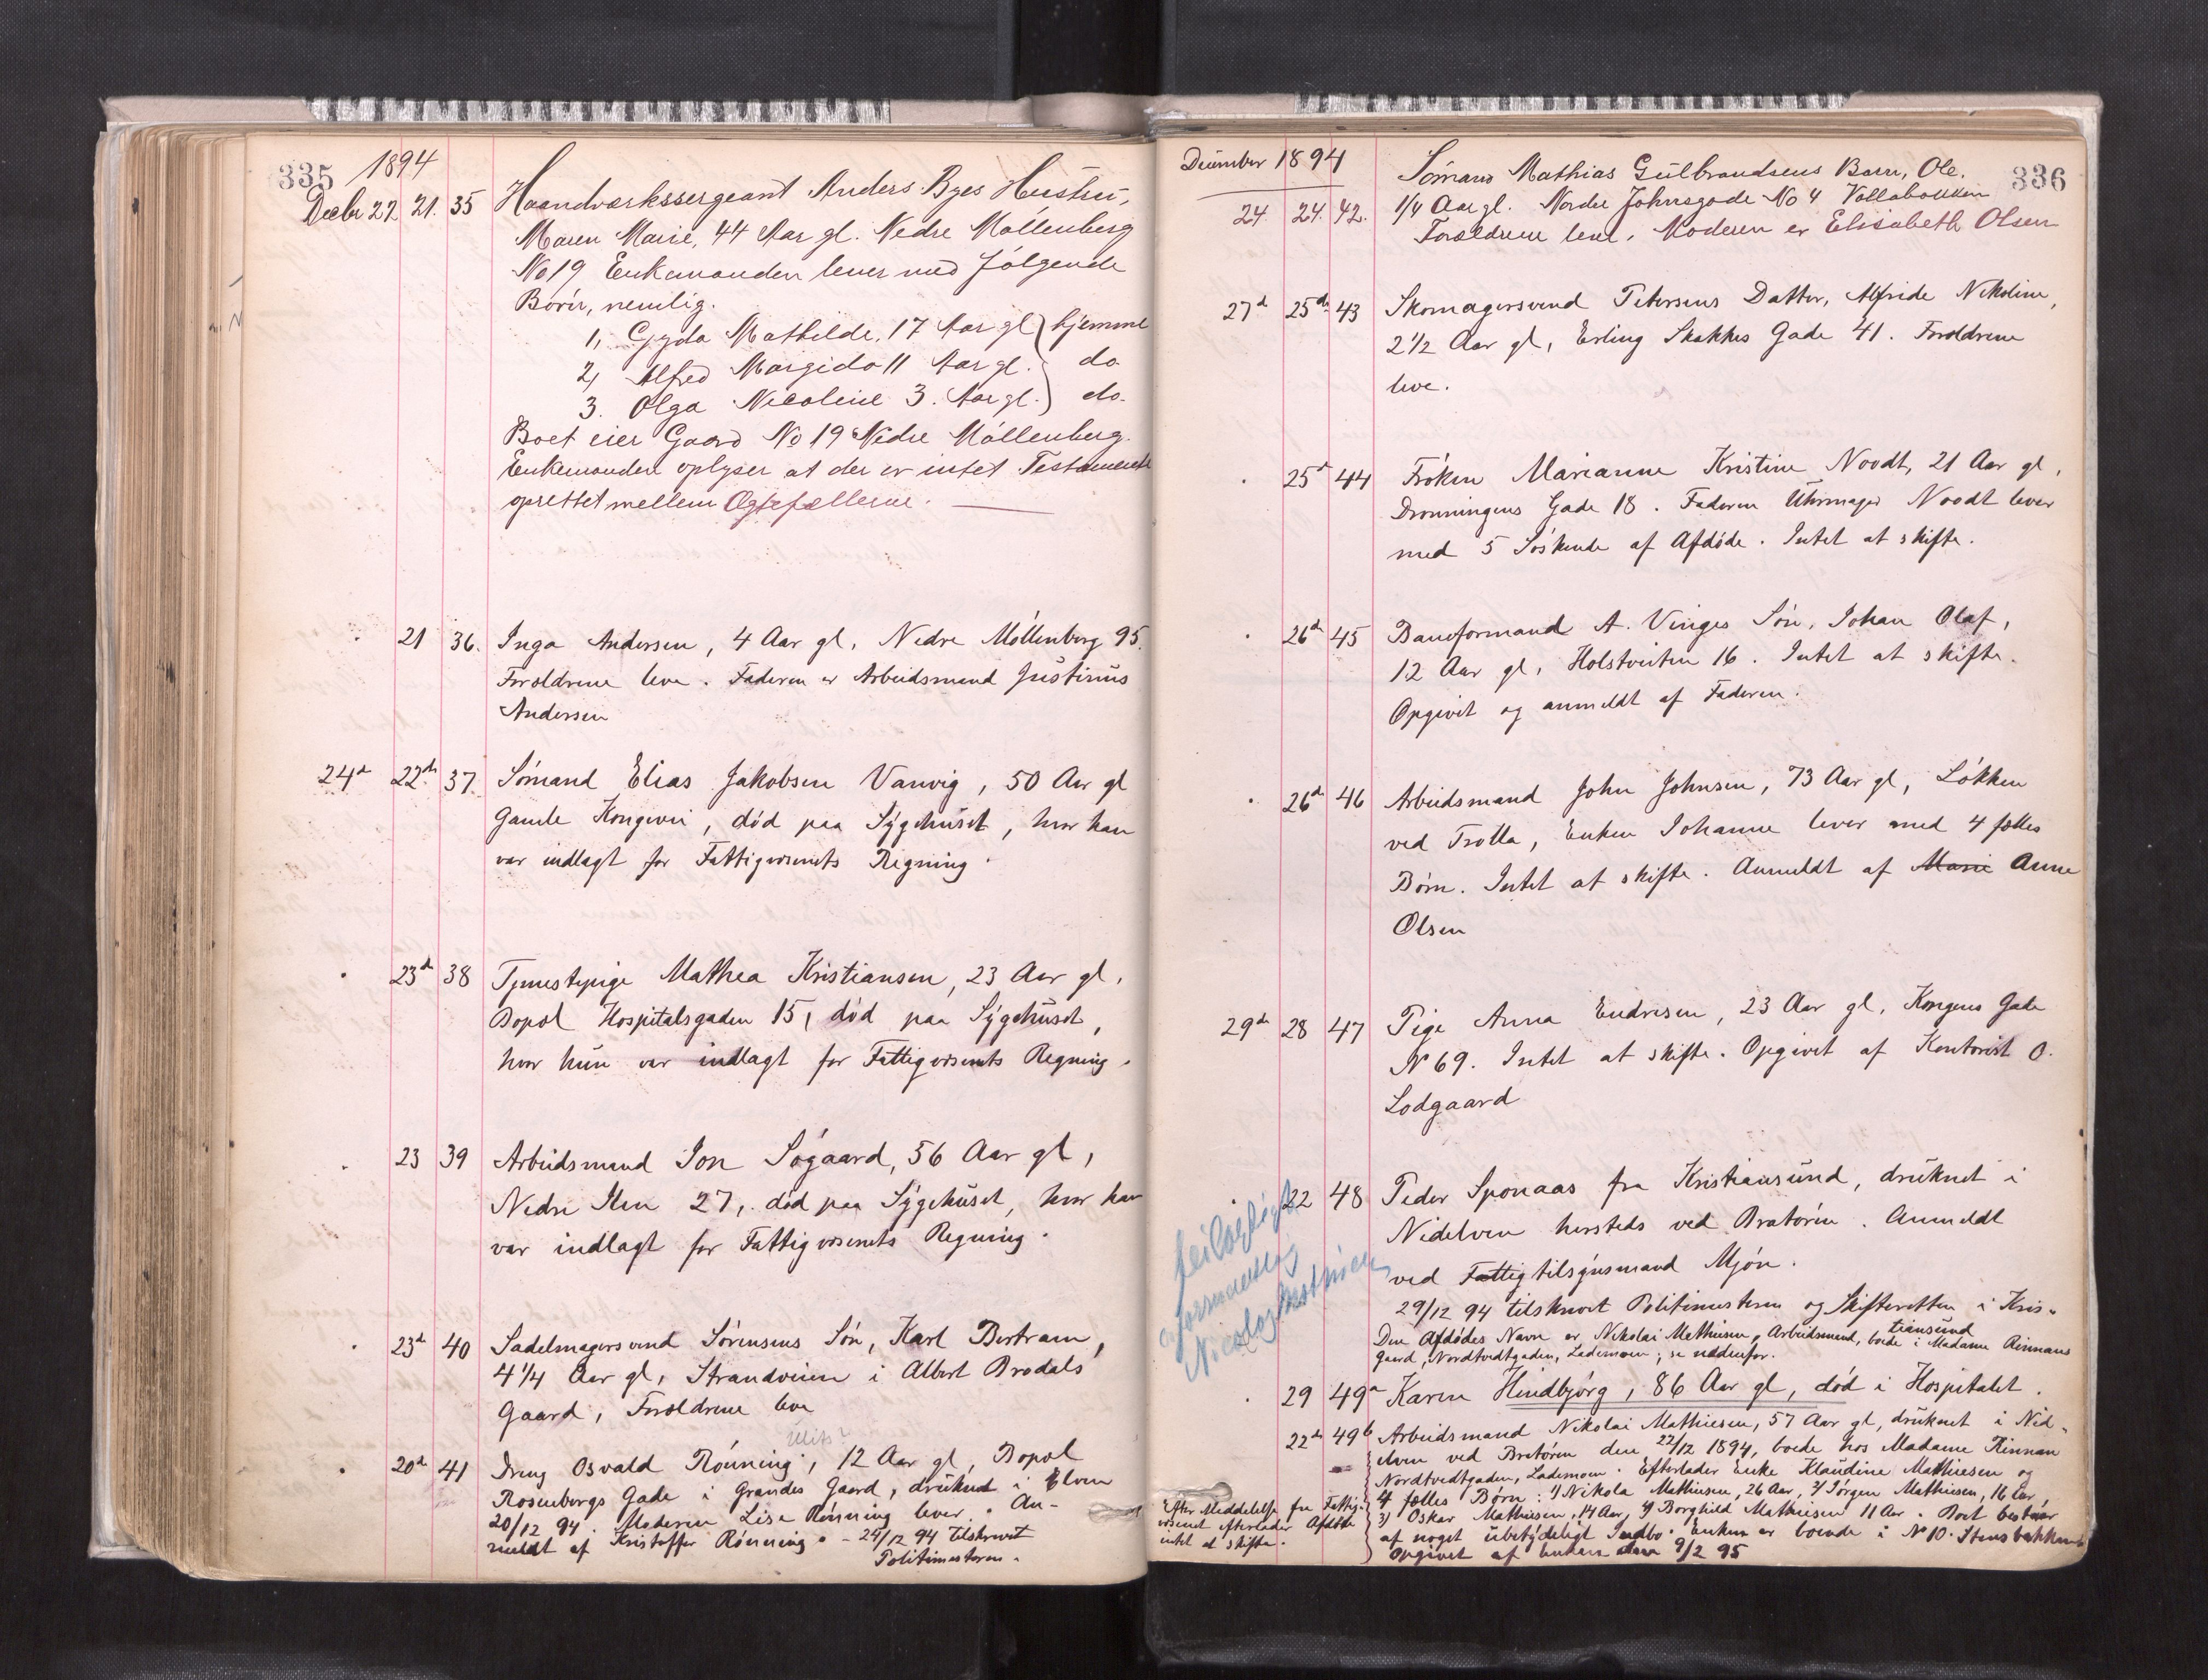 335 1894
Decbr 22 21. 35 Haandværkssergeant Anders Byes Hustru,
Maren Marie, 44 Aar gl. Nedre Møllenberg
No 19 Enkemanden lever med følgende
Børn, nemlig.
1, Gyda Mathilde, 17 Aar gl hjemme
2, Alfred Margido 11 Aar gl. do
3. Olga Nicoline 3. Aar gl. do.
Boet eier Gaard No 19 Nedre Møllenberg.
Enkemanden oplyser at der er intet Testamente
oprettet mellem Ægtefællerne.
21 36. Inga Andersen, 4 Aar gl, Nedre Møllenberg 95.
Forældrene leve. Faderen er Arbeidsmand Justinus
Andersen
24d 22d 37. Sømand Elias Jakobsen Vanvig, 50 Aar gl
Gamle Kongevei, død paa Sygehuset, hvor han
var indlagt for Fattigvæsenets Regning.
23d 38 Tjenestepige Mathea Kristiansen, 23 Aar gl,
Bopæl Hospitalsgaden 15, død paa Sygehuset,
hvor hun var indlagt for Fattigvæsenets Regning.
23 39 Arbeidsmand Jon Søgaard, 56 Aar gl,
Nedre Ilen 27, død paa Sygehuset, hvor han
var indlagt for Fattigvæsenets Regning.
23d 40 Sadelmagersvend Sørensens Søn, Karl Bertram,
4 1/4 Aar gl, Strandveien i Albert Brodals
Gaard, Forældrene leve
20d 41 Dreng Osvald Rønning, 12 Aar gl, Bopæl
Rosenborgs Gade i Grandes Gaard, druknet i Elven
20/12 94. Moderen Lise Rønning lever. An-
meldt af Kristoffer Rønning. - 29/12 94 tilskrevet
Politimesteren.
December 1894 336
24. 24. 42. Sømand Mathias Gulbrandsens Barn, Ole.
1/4 Aar gl. Nordre Johnsgade No 4 Vollabakken
Forældrene leve, Moderen er Elisabeth Olsen
27d 25d 43 Skomagersvend Petersens Datter, Alfride Nikoline,
2 1/2 Aar gl, Erling Skakkes Gade 41. Forældrene
leve.
25d 44 Frøken Marianne Kristine Noodt, 21 Aar gl,
Dronningens Gade 18. Faderen Uhrmager Noodt lever
med 5 Søskende af Afdøde. Intet at skifte.
26d 45 Baneformand A. Vinges Søn, Johan Olaf,
12 Aar gl, Holstveiten 16. Intet at skifte.
Opgivet og anmeldt af Faderen.
26d 46 Arbeidsmand John Johnsen, 73 Aar gl, Løkken
ved Trolla, Enken Johanne lever med 4 fælles
Børn. Intet at skifte. Anmeldt af Marie Anne
Olsen
29d 28 47 Pige Anna Endresen, 23 Aar gl, Kongens Gade
No 69. Intet at skifte. Opgivet af Kontorist O.
Lodgaard
22 48 Peder Sponaas fra Kristiansund, druknet i
Nidelven hersteds ved Bratøren. Anmeldt
ved Fattigtilsynsmand Mjøn.
29/12 94 tilskrevet Politimesteren og Skifteretten i Kris-
tiansund
Den Afdødes Navn er Nikolai Mathiesen, Arbeidsmand, boede i Madame Rinnans
Gaard, Nordtvedtgaden, Lademoen; se nedenfor.
29 49a Karen Hindbjørg, 86 Aar gl, død i Hospitalet.
22d 49b Arbeidsmand Nikolai Mathiesen, 57 Aar gl, druknet i Nid-
elven ved Bratøren den 22/12 1894, boede hos Madame Rinnan
Nordtvedtgaden, Lademoen. Efterlader Enke Klaudine Mathiesen og
4 fælles Børn: 1) Nikola Mathiesen, 26 Aar, 2) Jørgen Mathiesen, 16 Aar,
3) Oskar Mathiesen, 14 Aar, 4) Borghild Mathiesen 11 Aar. Boet bestaar
af noget ubetydeligt Indbo. Enken er boende i No 10 Stensbakken
Opgivet af Enken 9/2 95
Efter Meddelelse fra Fattig-
væsenet efterlader Afdøde
intet at skifte.